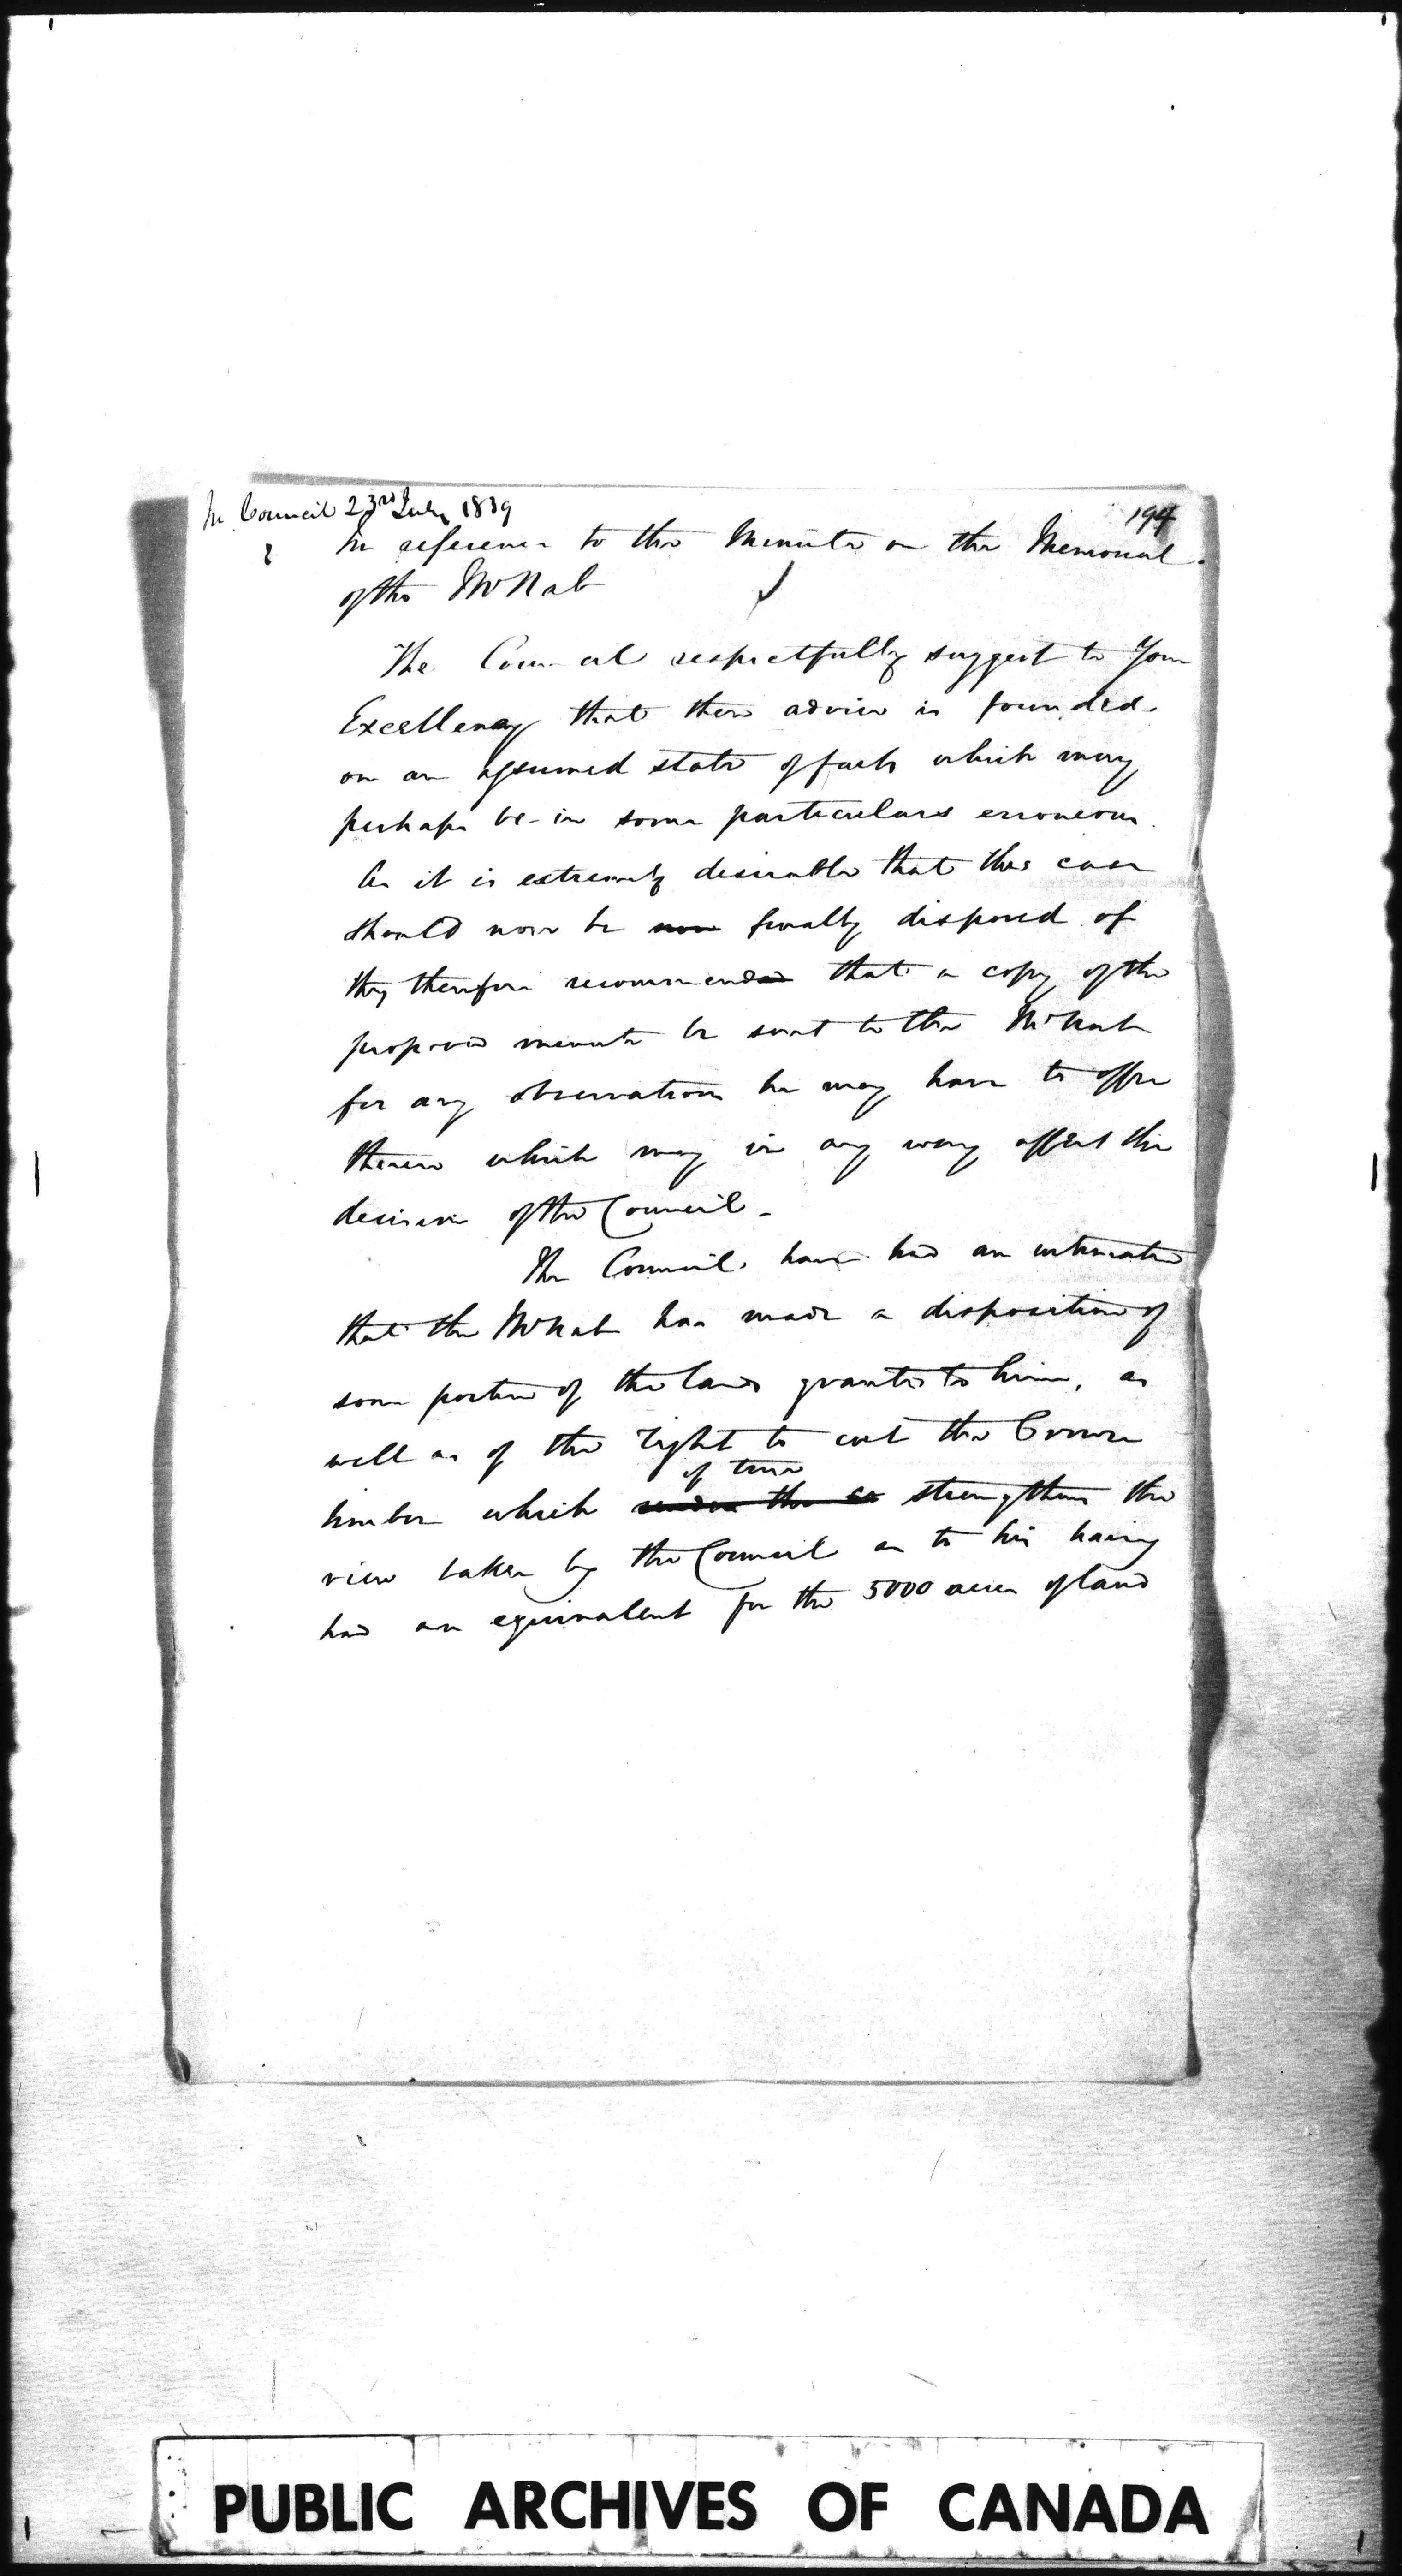 In Council 23rd July 1839
194
In reference to the Minute on the Memorial
of the McNab
The Council respectfully suggest to Your
Excellency that their advice is founded
on an assumed state of facts which may
perhaps be in some particulars erroneous.
As it is extremely desirable that this case
should now be now finally disposed of
they therefore recommended that a copy of the
proposed minute be sent to the McNab
for any observations he may have to offer
thereon which may in any way affect the
decision of the Council -
The Council have had an intimation
that the McNab has made a disposition of
some portion of the lands granted to him, as
well as of the right to cut the Crown
of true
timber which render the strengthens the
view taken by the Council as to his having
had an equivalent for the 5000 acres of land
PUBLIC ARCHIVES OF CANADA